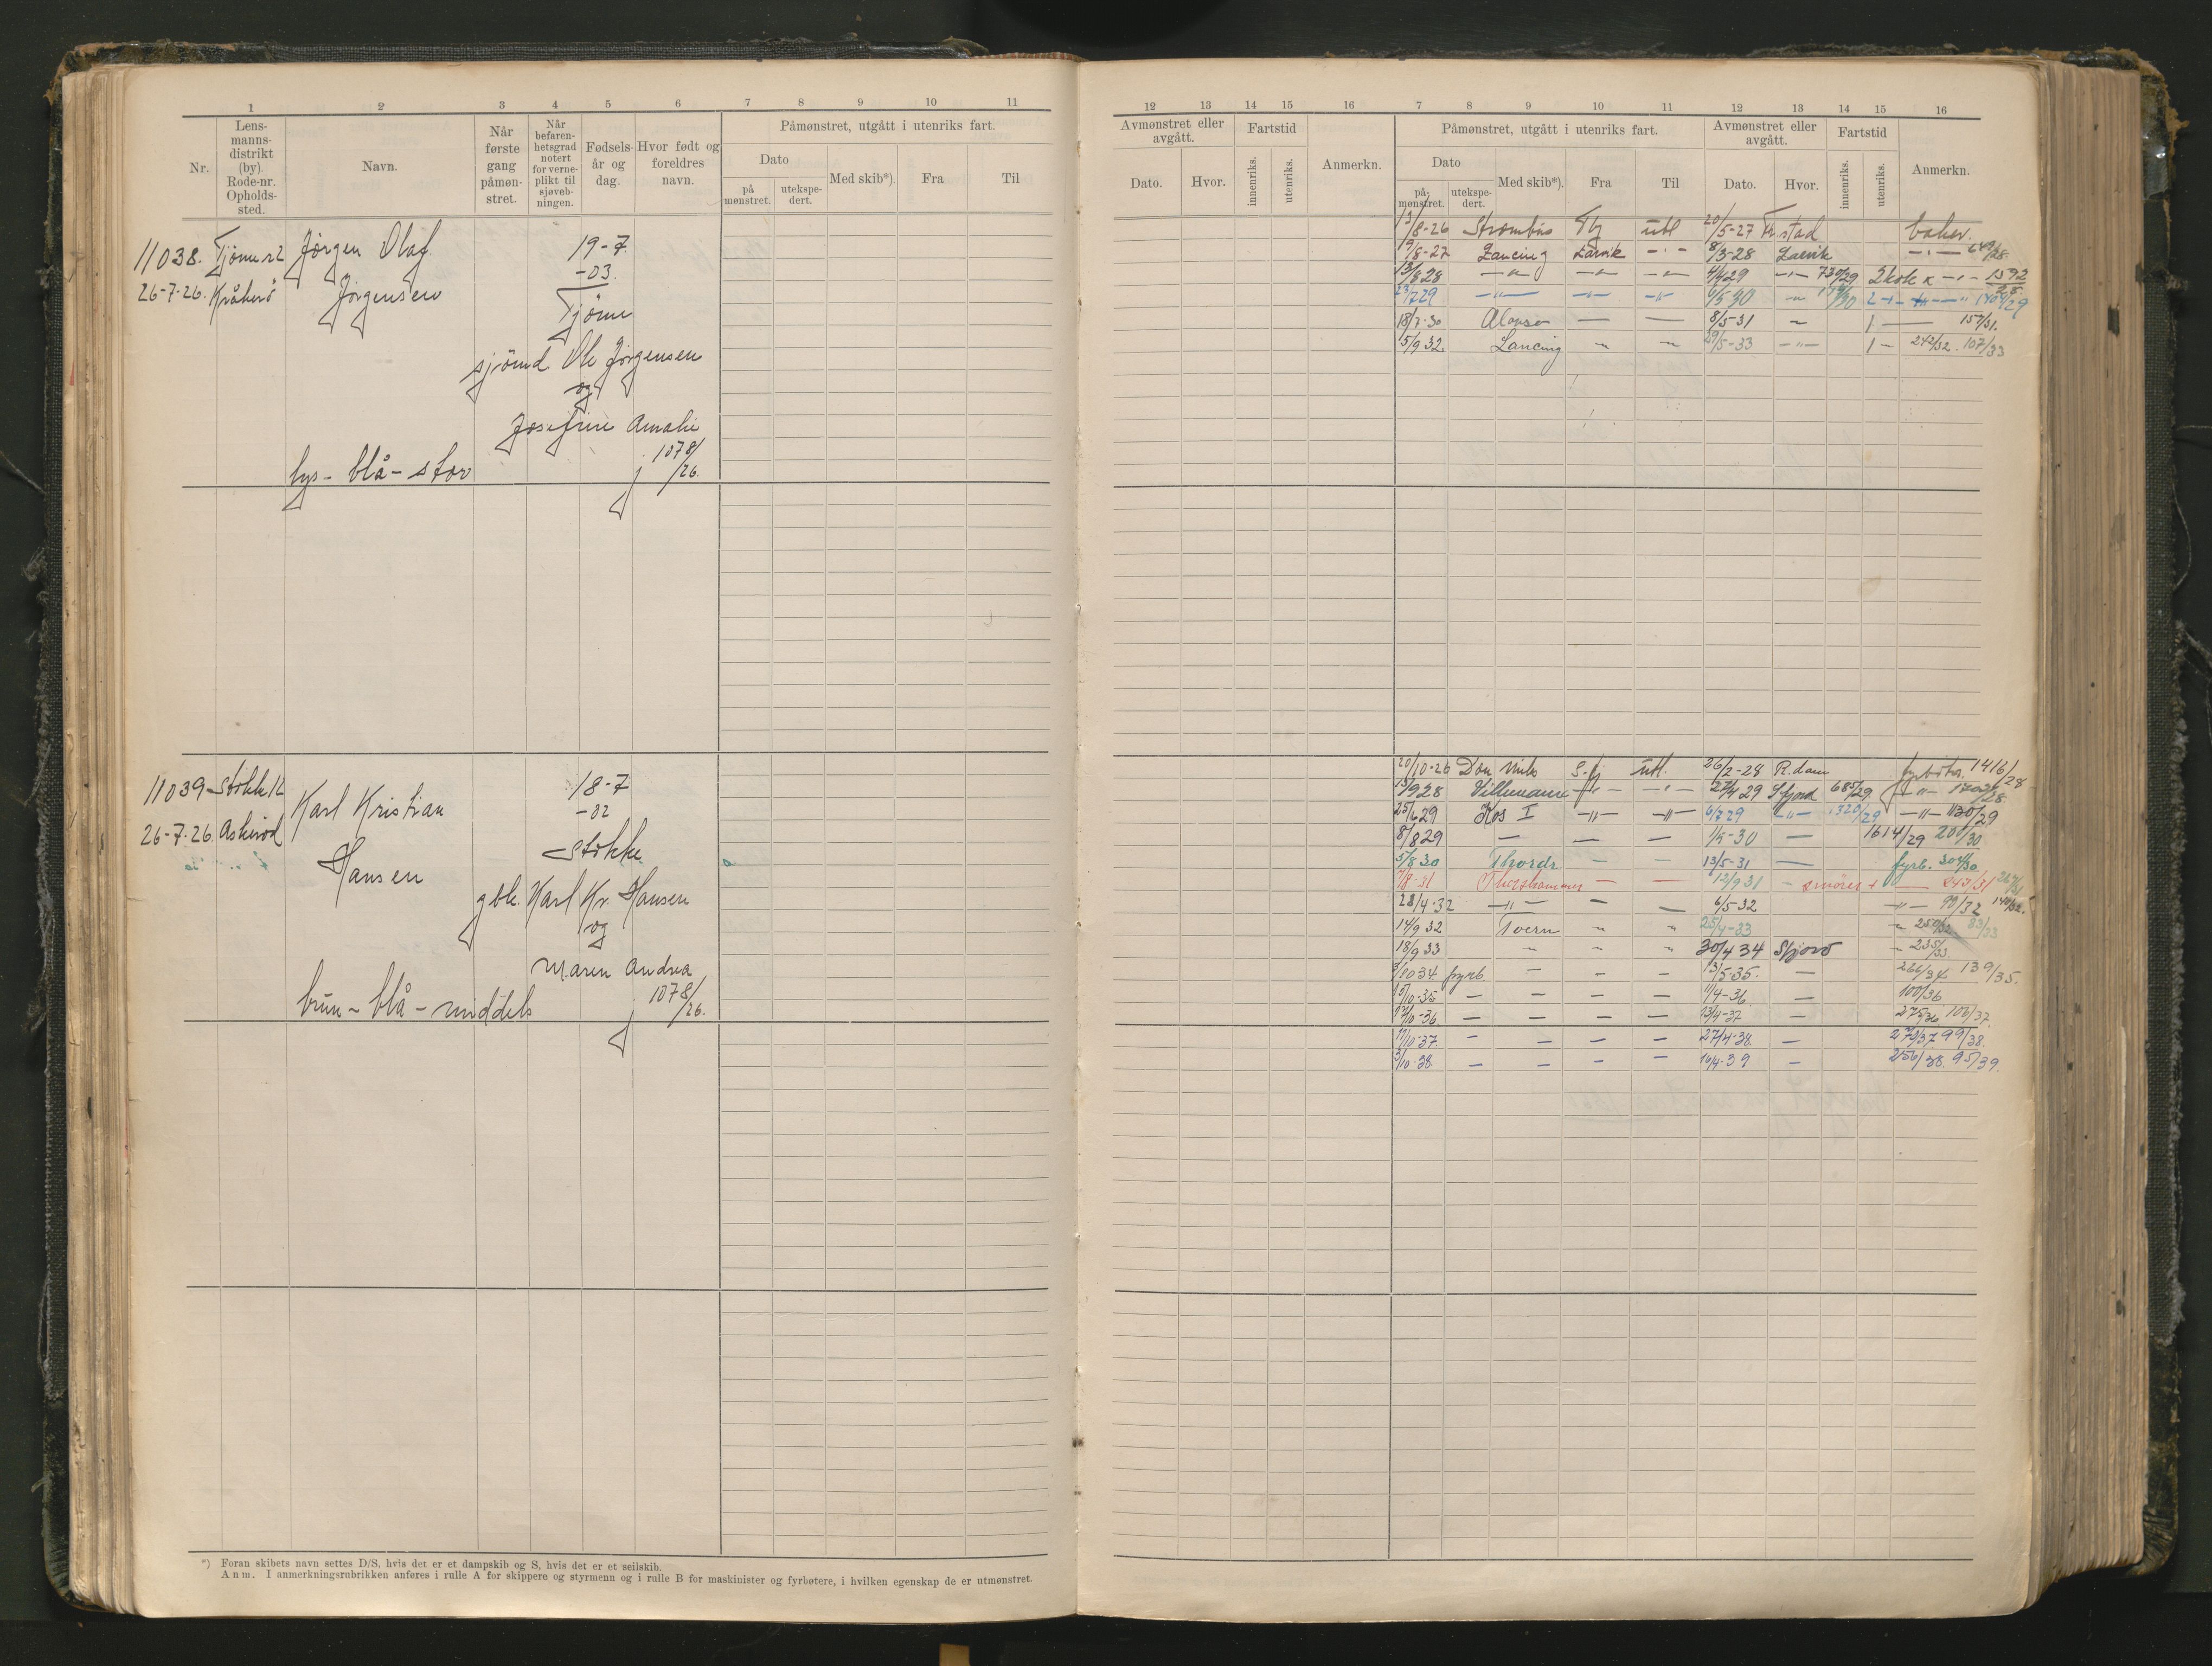 1 2 3 4 5 6 7 8 9 10 11
Nr.
Lens-
manns-
distrikt
(by).
Rode-nr.
Opholds-
sted.
Navn.
Når
første
gang
påmøn-
stret.
Når
befaren-
hetsgrad
notert
for verne-
plikt til
sjøveb-
ningen.
Fødsels-
år og
dag.
Hvor født og
foreldres
navn.
Påmønstret, utgått i utenriks fart.
Dato
på
mønstret.
utekspe-
dert.
Med skib*).
Fra
Til
11038. Tjøme r2 Jørgen Olaf 19-7.
-03.
26-7-26. Jørgensen
Tjøme
sjömd Ole Jørgensen
og
Josefine Amalie
lys- blå- stor j 1078/26.
11039 Stokke 12 Karl Kristian 18-7
-02
26-7-26 Askerød
Hansen Stokke
gbr. Karl Kr. Hansen
og
Maren Andrea
brun- blå- middels j 1078/26.
*) Foran skibets navn settes D/S, hvis det er et dampskib og S, hvis det er et seilskib.
Anm. I anmerkningsrubrikken anføres i rulle A for skippere og styrmenn og i rulle B for maskinister og fyrbøtere, i hvilken egenskap de er utmønstret.
12 13 14 15 16 7 8 9 10 11 12 13 14 15 16
Avmønstret eller
avgått.
Dato.
Hvor.
Fartstid
innenriks.
utenriks.
Anmerkn.
Påmønstret, utgått i utenriks fart.
Dato
på-
mønstret.
utekspe-
dert.
Med skib*).
Fra
Til
Avmønstret eller
avgått.
Dato.
Hvor.
Fartstid
innenriks.
utenriks.
Anmerkn.
13/8-26 Strombus Tbg utl 20/5-27 Fr stad
19/8-27 Lancing Larvik -"- 8/3-28 Larvik -"-
13/8 28 -"- -"- -"- 4/4 29 -"- 730/29 2kok -"- 1592/28
23/7 29 -"- -"- -"- 6/5 30 -"-
18/7-30 8/5-31 157/31.
5/9 32 Lancing " " 29/5-33 -"- 242/32. 107/33
20/10-26 S.fj utl. 26/2-28 R.dam fyrbøter. 1416/28
13/9 28 Villemann -"- -"- 27/4 29 Sfjord 685/29
25/6 29 Kos I -"- -"- 6/7 29 -"- 1320/29 -"- 1130/29
8/8 29 — — — 1/5-30 — 1614/29 200/30
5/8 30 — — 13/5-31 — fyrb. 308/30
7/8-31 Thorshammer — — 12/9 31 - smører 243/31
28/4-32 -"- — — 6/5-32 -"- 90/32 140/32.
14/9 32 Toern " " 25/4-33 " 250/32 83/33
18/9 33 " " " 30/4 34 Sfjord " 235/33
3/10 34 fyrb — - - 13/5-35. — 266/34 139/35.
15/10-35 — — — — 11/4-36 — 100/36
12/10-36 — — — — 13/4-37 — 275/36 106/37.
11/10-37. — — — — 27/4-38. — 270/37 99/38.
3/10-38. — — — — 16/4-39 — 256/38. 95/39.